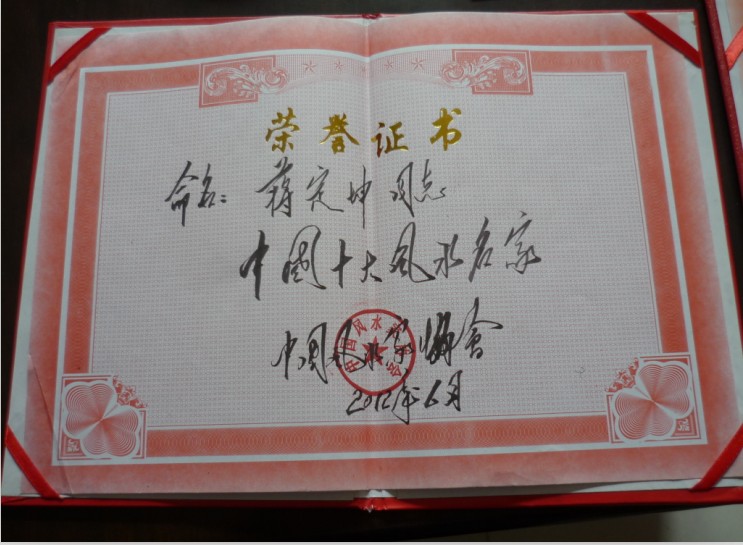 荣誉证书
命名：蒋定坤同志
中國十大风水名家
中国风水家协會
2012年6月